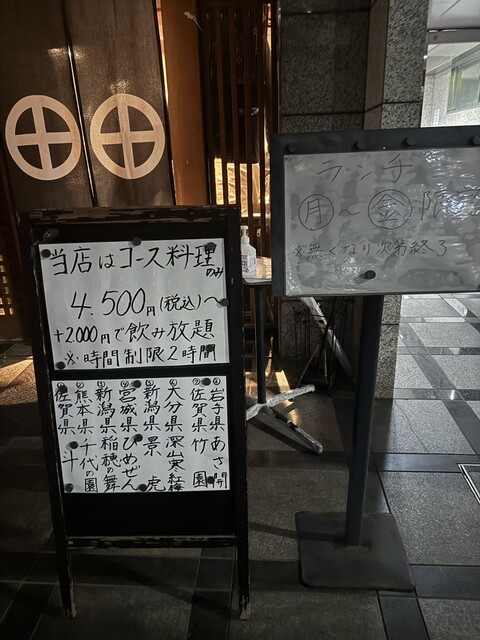 当店はコース料理のみ
4.500円(税込)〜
+2000円で飲み放題
※時間制限2時間
岩手県 あさ開
佐賀県 竹園
大分県 深山寒紅梅
新潟県 景虎
宮城県 ひめぜん
新潟県 稲穂の舞
熊本県 千代の園
佐賀県 斗
ランチ
月〜金限定
※無くなり次第終了